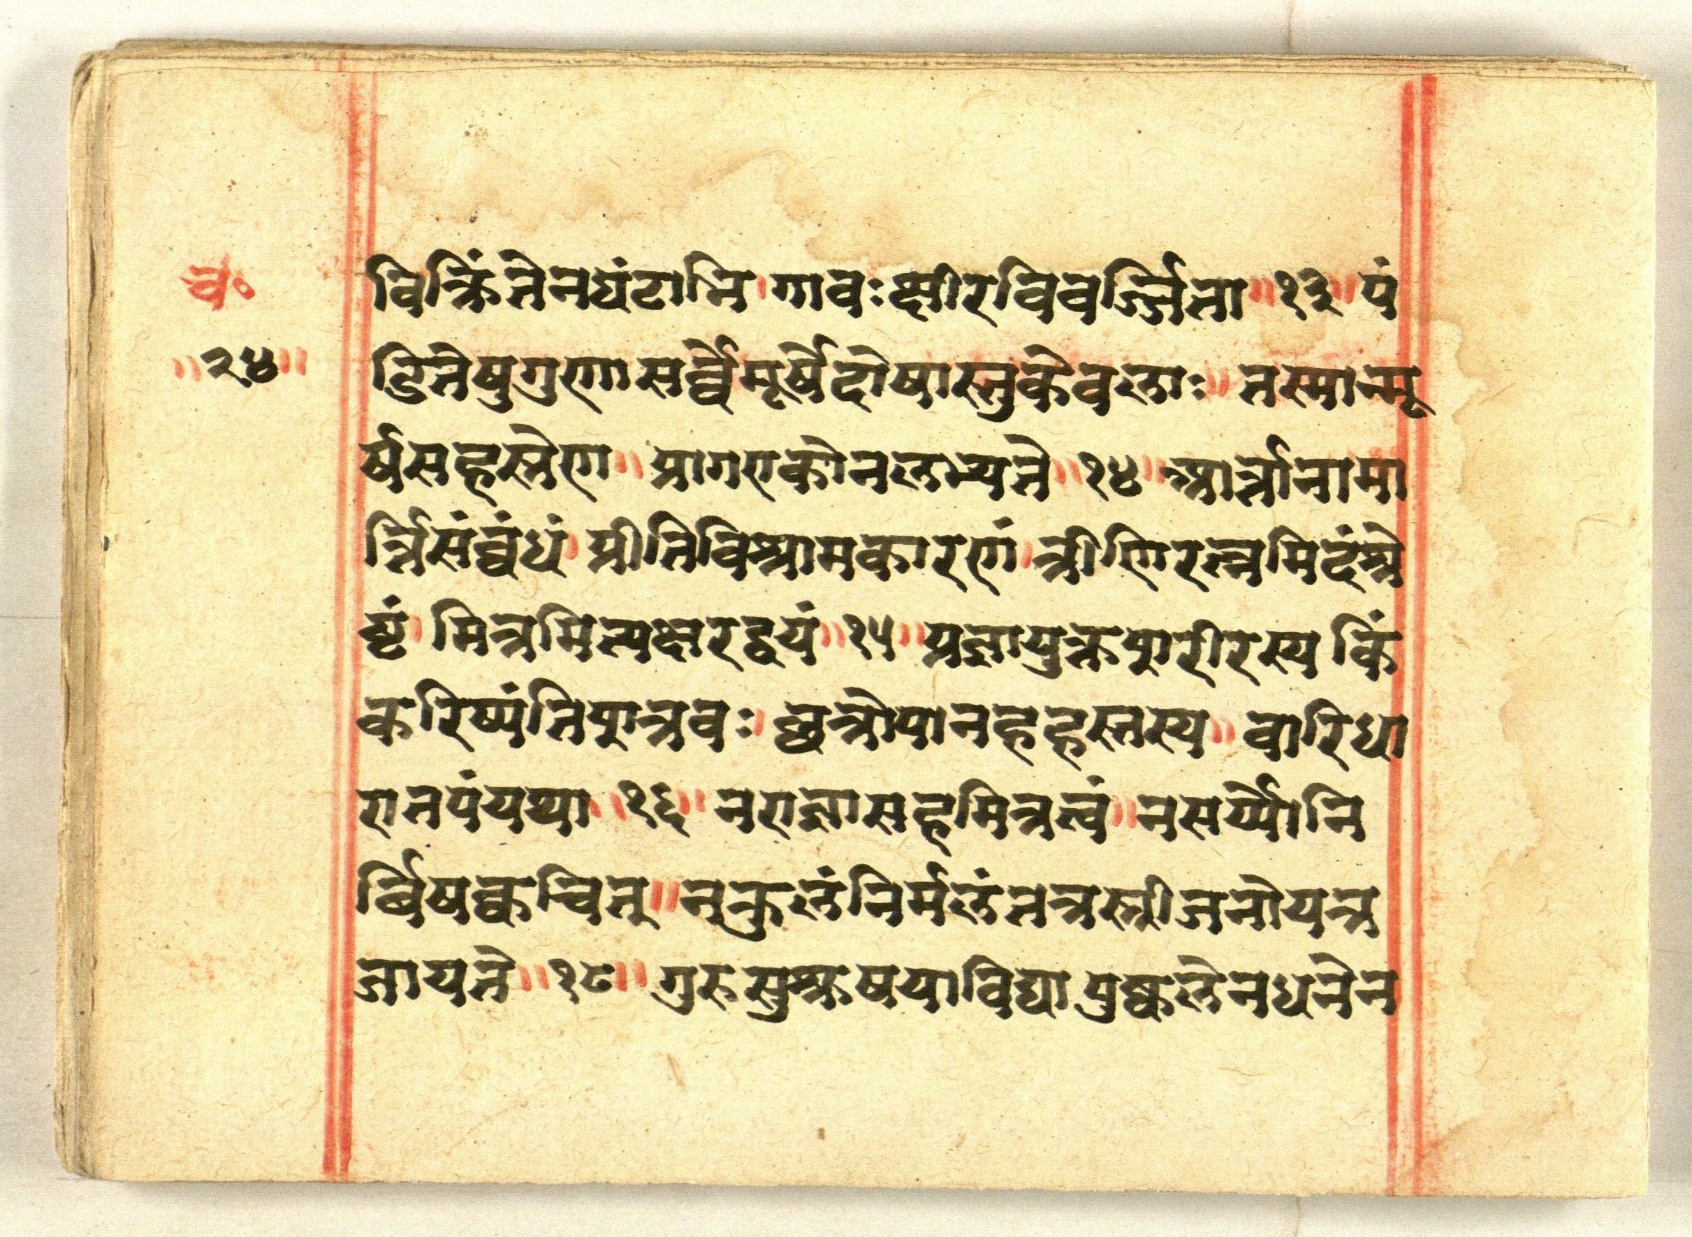 च॰
॥२४॥
विक्तिंतेनघंटानि।गावःक्षीरविवर्ज्जिता॥१३॥पं
डितेषुगुणासर्व्वेमूर्षेदोषास्तुकेवलाः॥तस्मान्मू
र्षसहस्रेण॥प्रागएकोनलभ्यते॥१४॥आर्त्तानामा
र्त्तिसंब्बंधं।प्रीतिविश्रामकारणं।त्रीणिरत्नमिदंश्रे
ष्टं।मित्रमित्यक्षरद्वयं॥१५॥प्रज्ञायुक्तशरीरस्य किं
करिष्यंतिशत्रवः।छत्रोपानहहस्तस्य॥वारिधा
रातपंयथा॥१६॥नराज्ञासहमित्रत्वं॥नसर्प्पोनि
र्ब्बिषक्वचित्॥नकुलंनिर्मलंतत्रस्त्रीजनोयत्र
जायते॥१८॥गुरुसुश्रूषयाविद्या पुष्कलेनधनेन